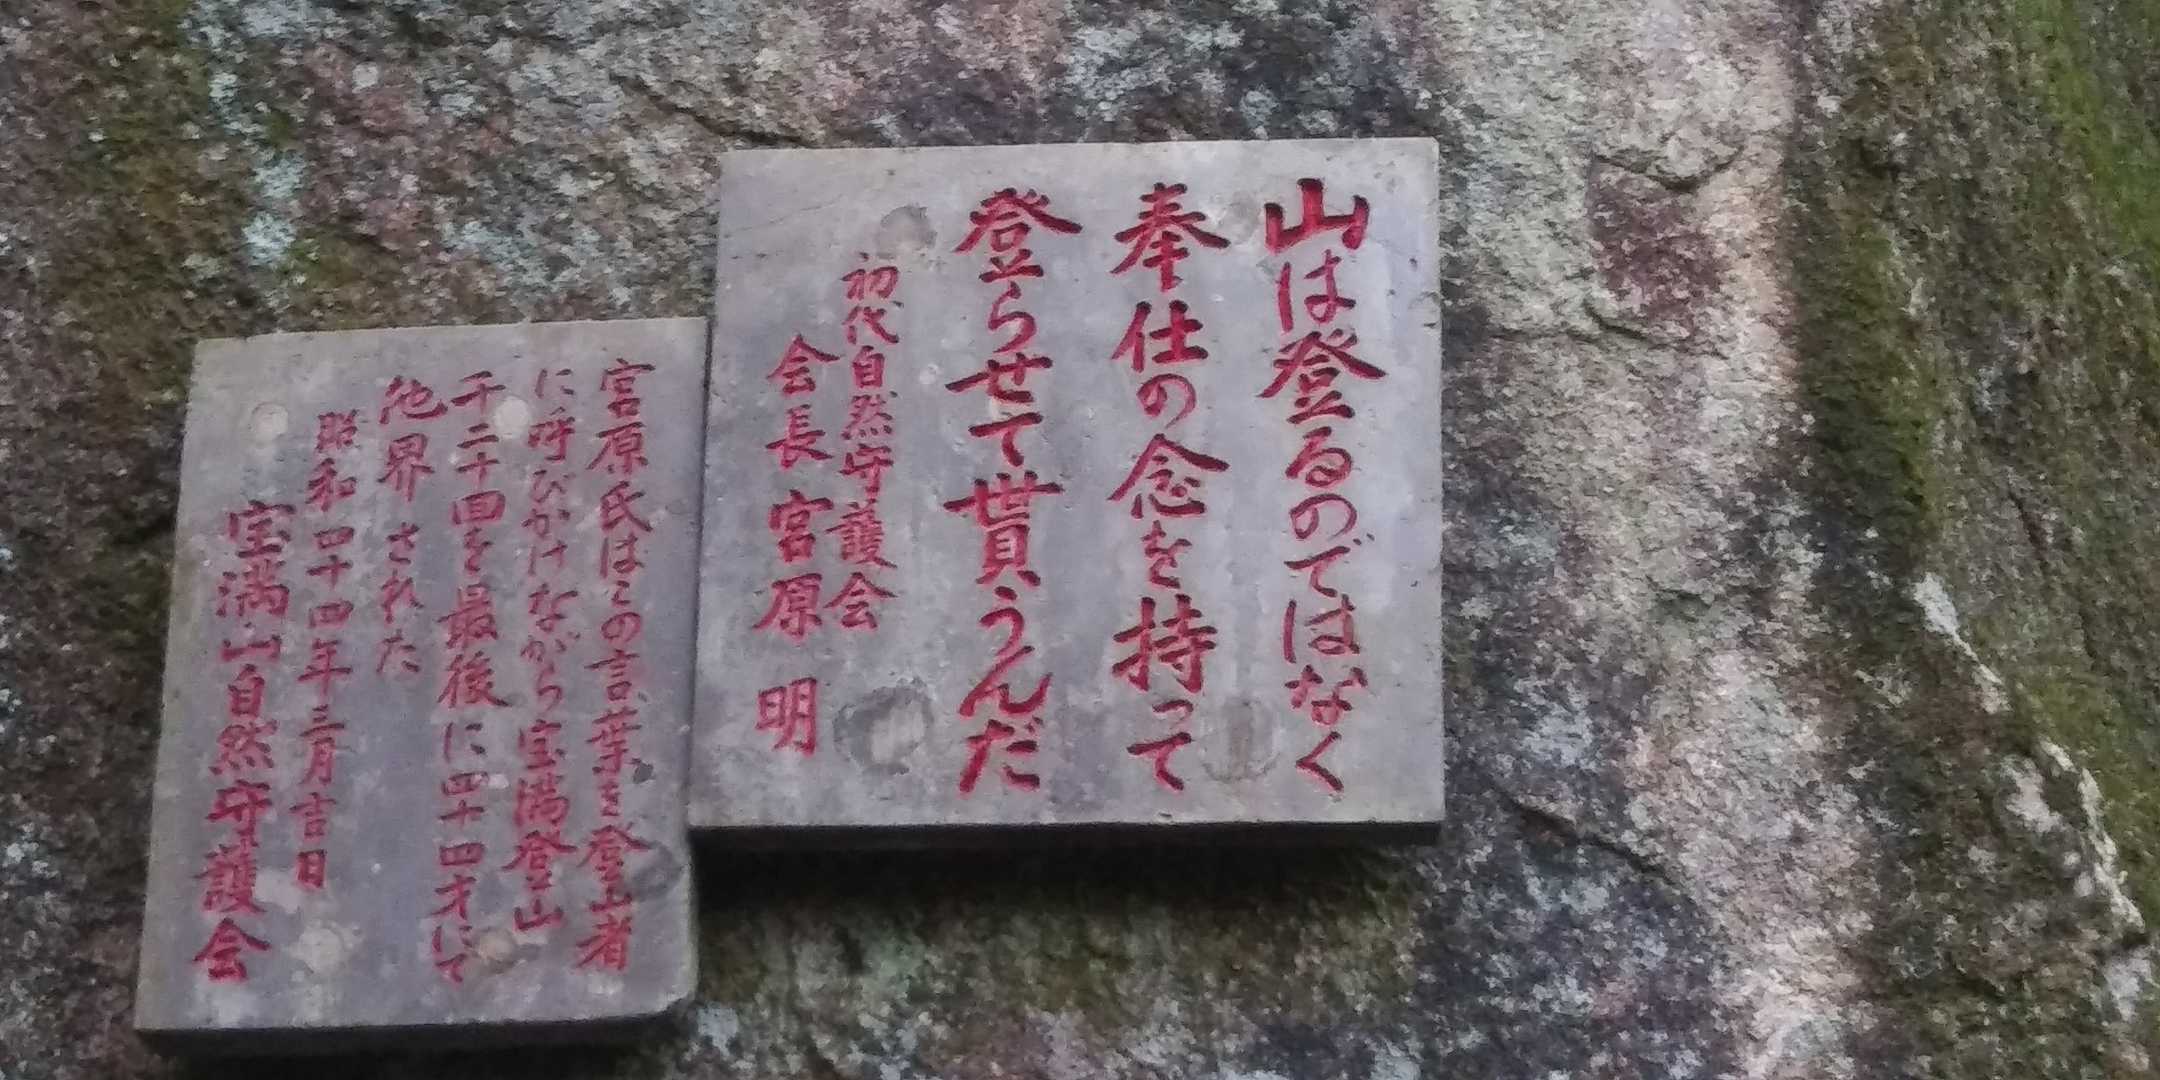 山は登るのではなく
奉仕の念を持って
登らせて貰うんだ
初代自然守護会
会長 宮原 明
宮原氏はこの言葉を登山者
に呼びかけながら宝満登山
千二十回を最後に四十四才にて
他界された
昭和四十四年三月吉日
宝満山自然守護会